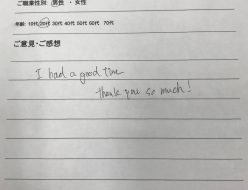 ご職業性別 男性 ・ 女性
年齢: 10代 20代 30代 40代 50代 60代 70代
ご意見・ご感想
I had a good time
thank you so much!